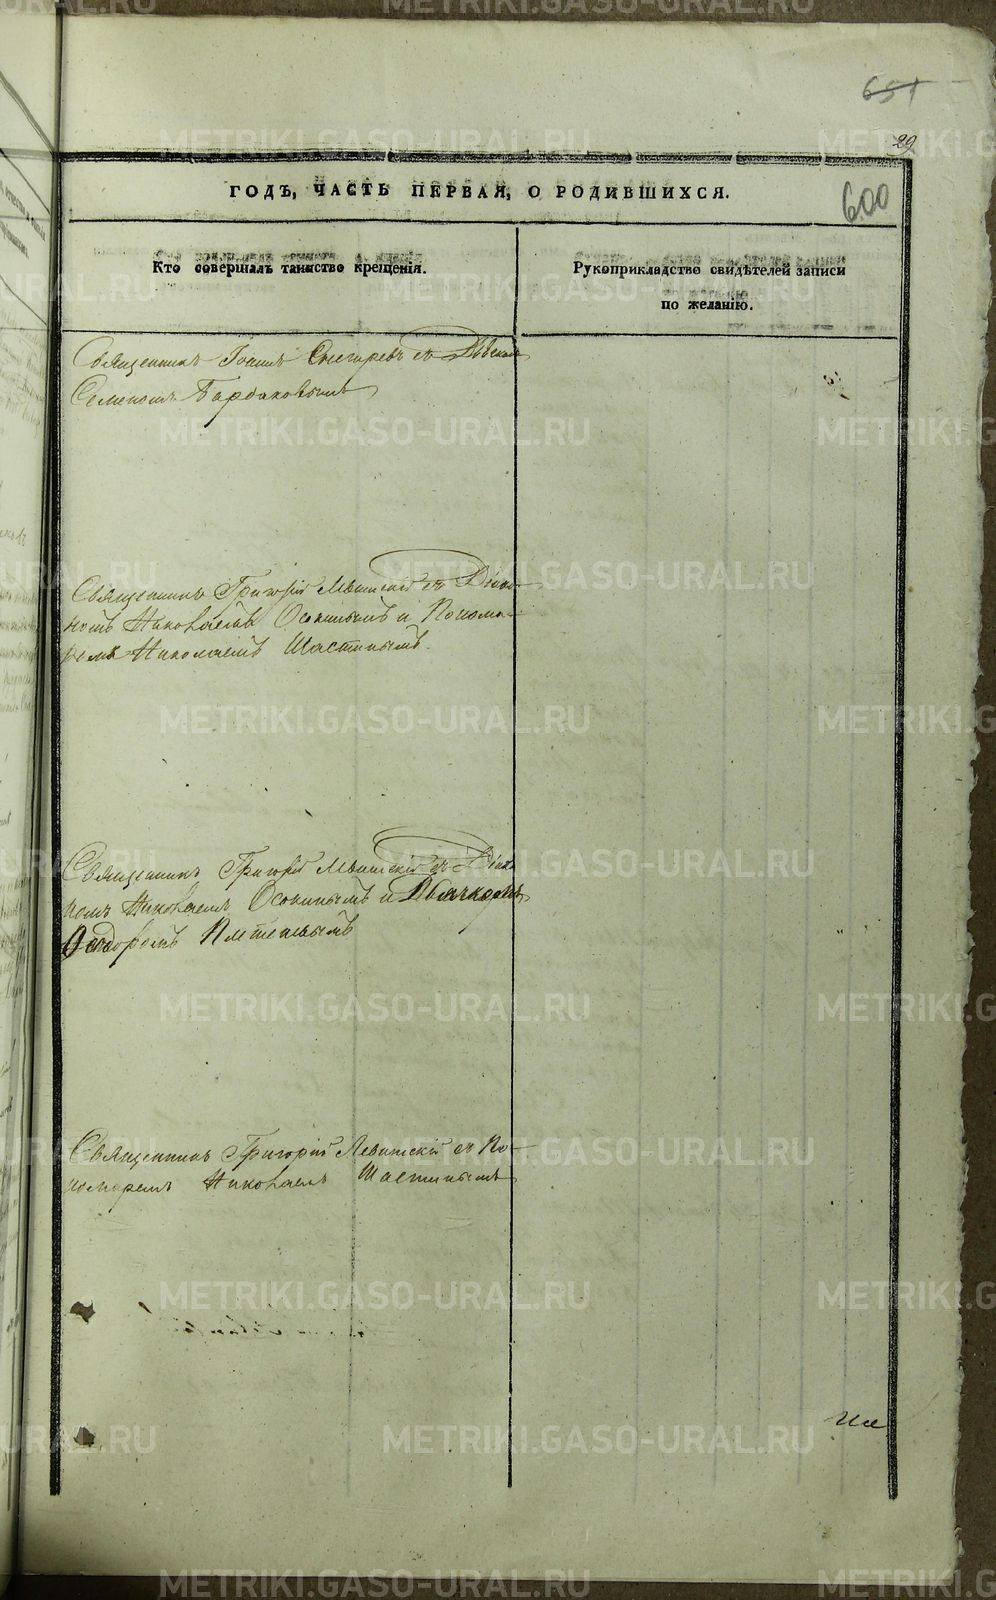 651
29
600
ГОДЪ, ЧАСТЬ ПЕРВАЯ, О РОДИВШИХСЯ.
Кто совершалъ таинство крещенія.
Рукоприкладство свидѣтелей записи
по желанію.
Священникъ Іоаннъ Снегиревъ съ
Семеномъ Бардаковымъ
Священникъ Григорій Левитскій съ Діако-
номъ Николаемъ Осокинымъ и Понома-
ремъ Николаемъ Шастинымъ.
Священникъ Григорій Левитскій съ Діако
номъ Николаемъ Осокинымъ и Дьячкомъ
Священникъ Григорій Левитскій съ По-
номаремъ Николаемъ Шастинымъ
METRIKI.GASO-URAL.RU